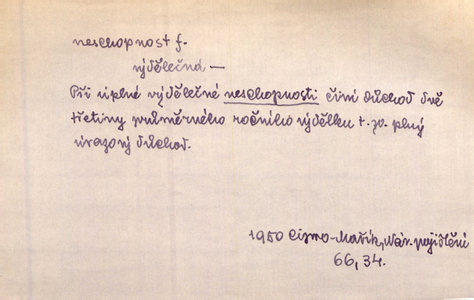 neschopnost f.
výdělečná —
Při úplné výdělečné neschopnosti činí důchod dvě
třetiny průměrného ročního výdělku t. zv. plný
úrazový důchod.
1950 Cismo-Mařík, Nár. pojištění
66, 34.